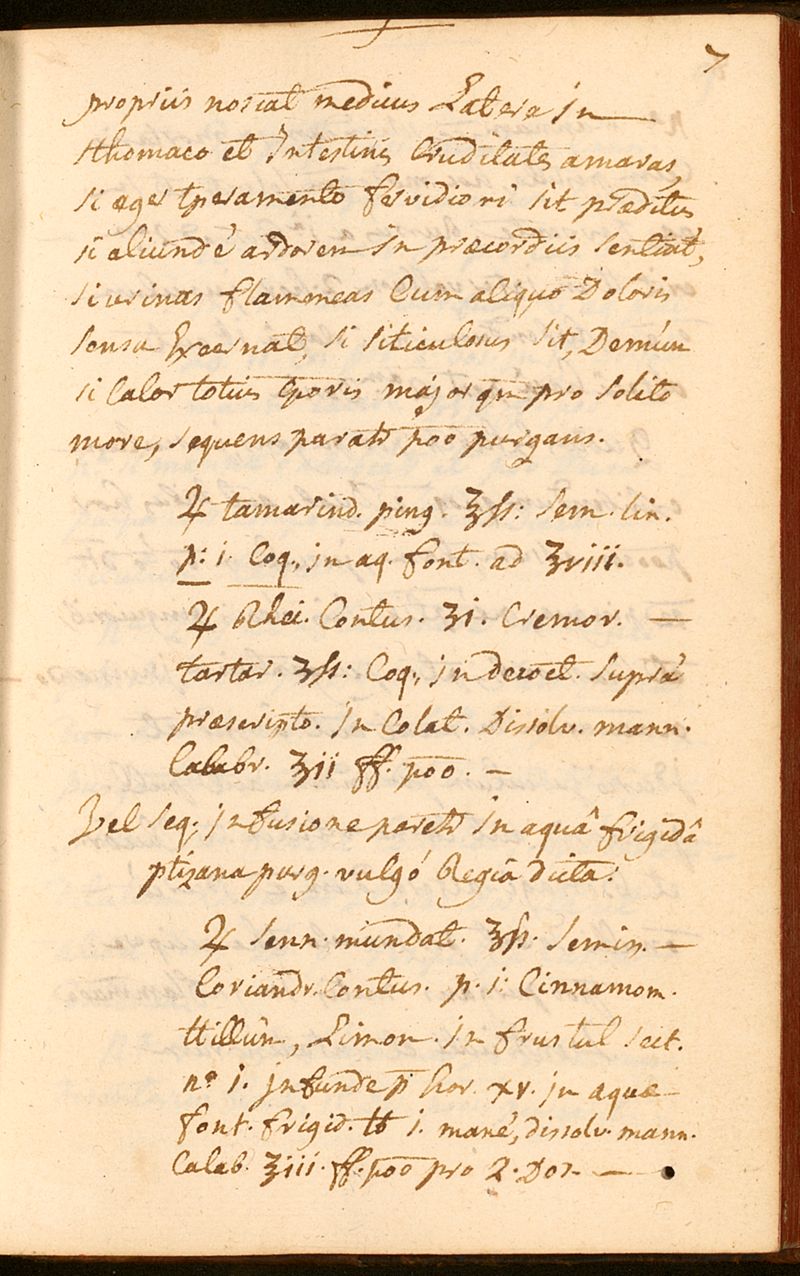 7
propriis noscat medicus Latere in
sthomaco et Intestinis Cruditates amaras,
si æger tperamento fervidiori sit præditus
si aliundè ardorem in præcordiis sentiat,
si urinas flammeas Cum aliquo Doloris
sensu Excernat, si siticulosus sit, Demùm
si Calor totius Cporis major qm pro solito
more, sequens paratr poo purgans.
♃ tamarind. ping. ℥ss: sem. lin.
p: i. Coq. in aq. font. ad ℥viii.
♃ Rhei. Contus. ʒi. Cremor. —
tartar. ʒss: Coq. in decoct. suprà
præscripto. in Colat. Dissolv. mann.
Calabr. ℥ii ff. poo. —
Vel seq. infusione paretr in aquâ frigidâ
ptizana purg. vulgó Regia dicta:
♃ senn. mundat. ℥ss. semin. —
Coriandr. Contus. p. i. Cinnamom.
ttillùm, Limon. in frustul sect.
n° i. infunde p hor. xv. in aquæ
font. frigid. ℔ i. mane, dissolv. mann.
Calab. ℥iii. ff. poo pro 2. Dos. —